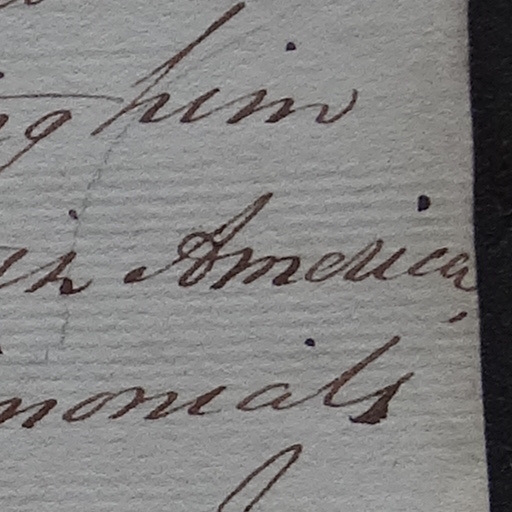 him
in America,
monials